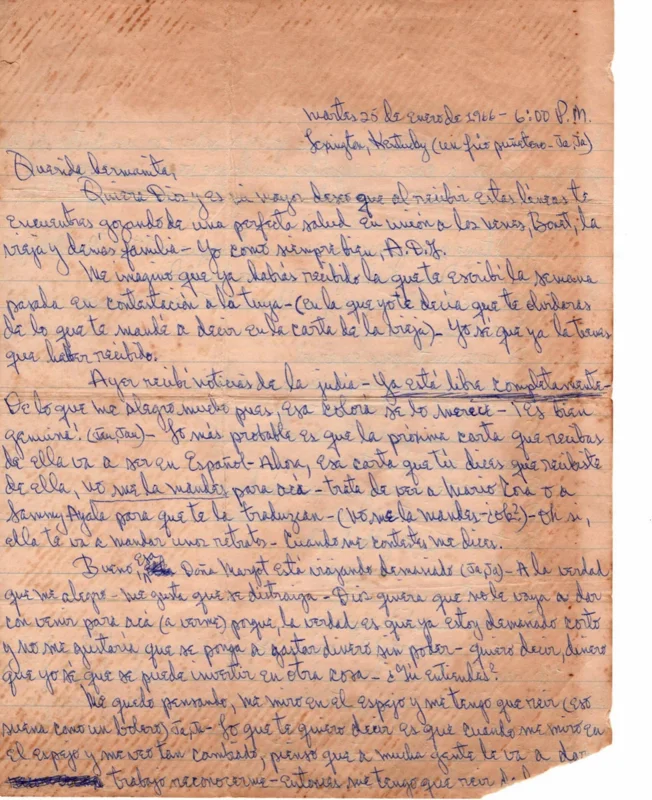 Martes 25 de Enero de 1966 - 6:00 P.M.
Lexington, Kentucky (un frío puñetero - Ja, Ja)
Querida hermanita,
Quiera Dios y es mi mayor deseo que al recibir estas líneas te
encuentres gozando de una perfecta salud en unión a los nenes, Bonet, la
vieja y demás familia - Yo como siempre bien, A.D.G.
Me imagino que ya habrás recibido la que te escribí la semana
pasada en contestación a la tuya - (en la que yo te decía que te olvidaras
de lo que te mandé a decir en la carta de la vieja) - Yo sé que ya la tienes
que haber recibido.
Ayer recibí noticias de la judía - Ya está libre completamente -
De lo que me alegro mucho pues, esa colorá se lo merece - ¡Es bien
genuina! (Jau, Jau) - Lo más probable es que la próxima carta que recibas
de ella va a ser en Español - Ahora, esa carta que tú dices que recibiste
de ella, no me la mandes para acá - trate de ver a Mario Cora o a
Sammy Ayala para que te la traduzcan - (No me la mandes - ¿ob?) - Oh sí,
ella te va a mandar unos retratos - Cuando me contestes me dices.
Bueno, Doña Margot está viajando demasiado (Ja, Ja) - A la verdad
que me alegro - me gusta que se distraiga - Dios quiera que no le vaya a dar
con venir para acá (a verme) porque, la verdad es que ya estoy demasiado corto
y no me gustaría que se ponga a gastar dinero sin poder - quiero decir, dinero
que yo sé que se puede invertir en otra cosa - ¿Tú entiendes?
Me quedo pensando, me miro en el espejo y me tengo que reir (Eso
suena como un bolero) Ja, Ja - Lo que te quiero decir es que cuando me miro en
el espejo y me veo tan cambado, pienso que a mucha gente le va a dar
trabajo reconocerme - entonces me tengo que reir de